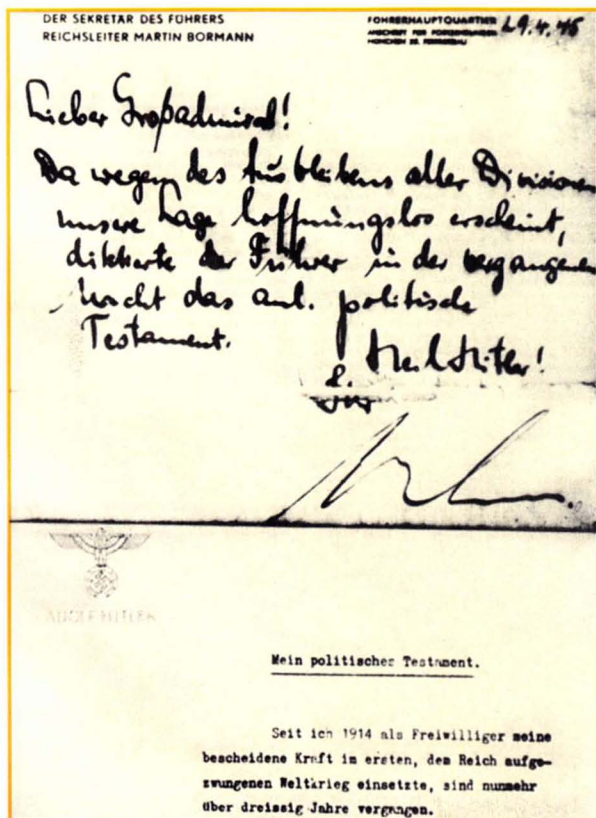 DER SEKRETÄR DES FÜHRERS
REICHSLEITER MARTIN BORMANN
FÜHRERHAUPTQUARTIER 29.4.45
ANSCHRIFT FÜR POSTSENDUNGEN
MÜNCHEN 33, FÜHRERBAU
Lieber Großadmiral!
Da wegen des Ausbleibens aller Divisionen
unsere Lage hoffnungslos erscheint,
diktierte der Führer in der vergangenen
Nacht das anl. politische
Testament.
Heil Hitler!
Ihr
ADOLF HITLER
Mein politisches Testament.
Seit ich 1914 als Freiwilliger meine
bescheidene Kraft im ersten, dem Reich aufge-
zwungenen Weltkrieg einsetzte, sind nunmehr
über dreissig Jahre vergangen.